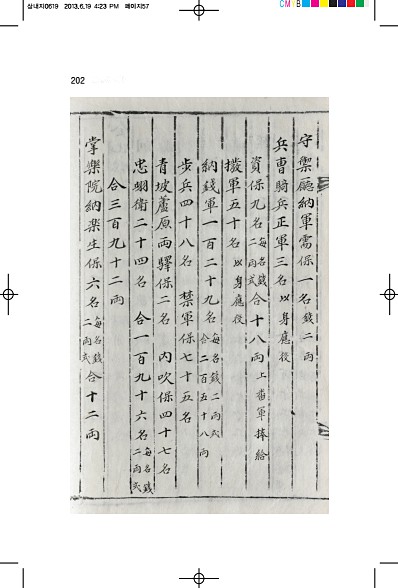 삼내지0619 2013.6.19 4:23 PM 페이지57
CMYB
202
守禦廳納軍需保一名 錢二兩
兵曹騎兵正軍三名 以身應役
資保九名 每名錢二兩式 合十八兩 上番軍捧給
撥軍五十名 以身應役
納錢軍一百二十九名 每名錢二兩式 合二百五十八兩
步兵四十八名 禁軍保七十五名
青坡蘆原兩驛保二名 內吹保四十七名
忠翊衛二十四名 合一百九十六名 每名錢二兩式
合三百九十二兩
掌樂院納樂生保六名 每名錢二兩式 合十二兩